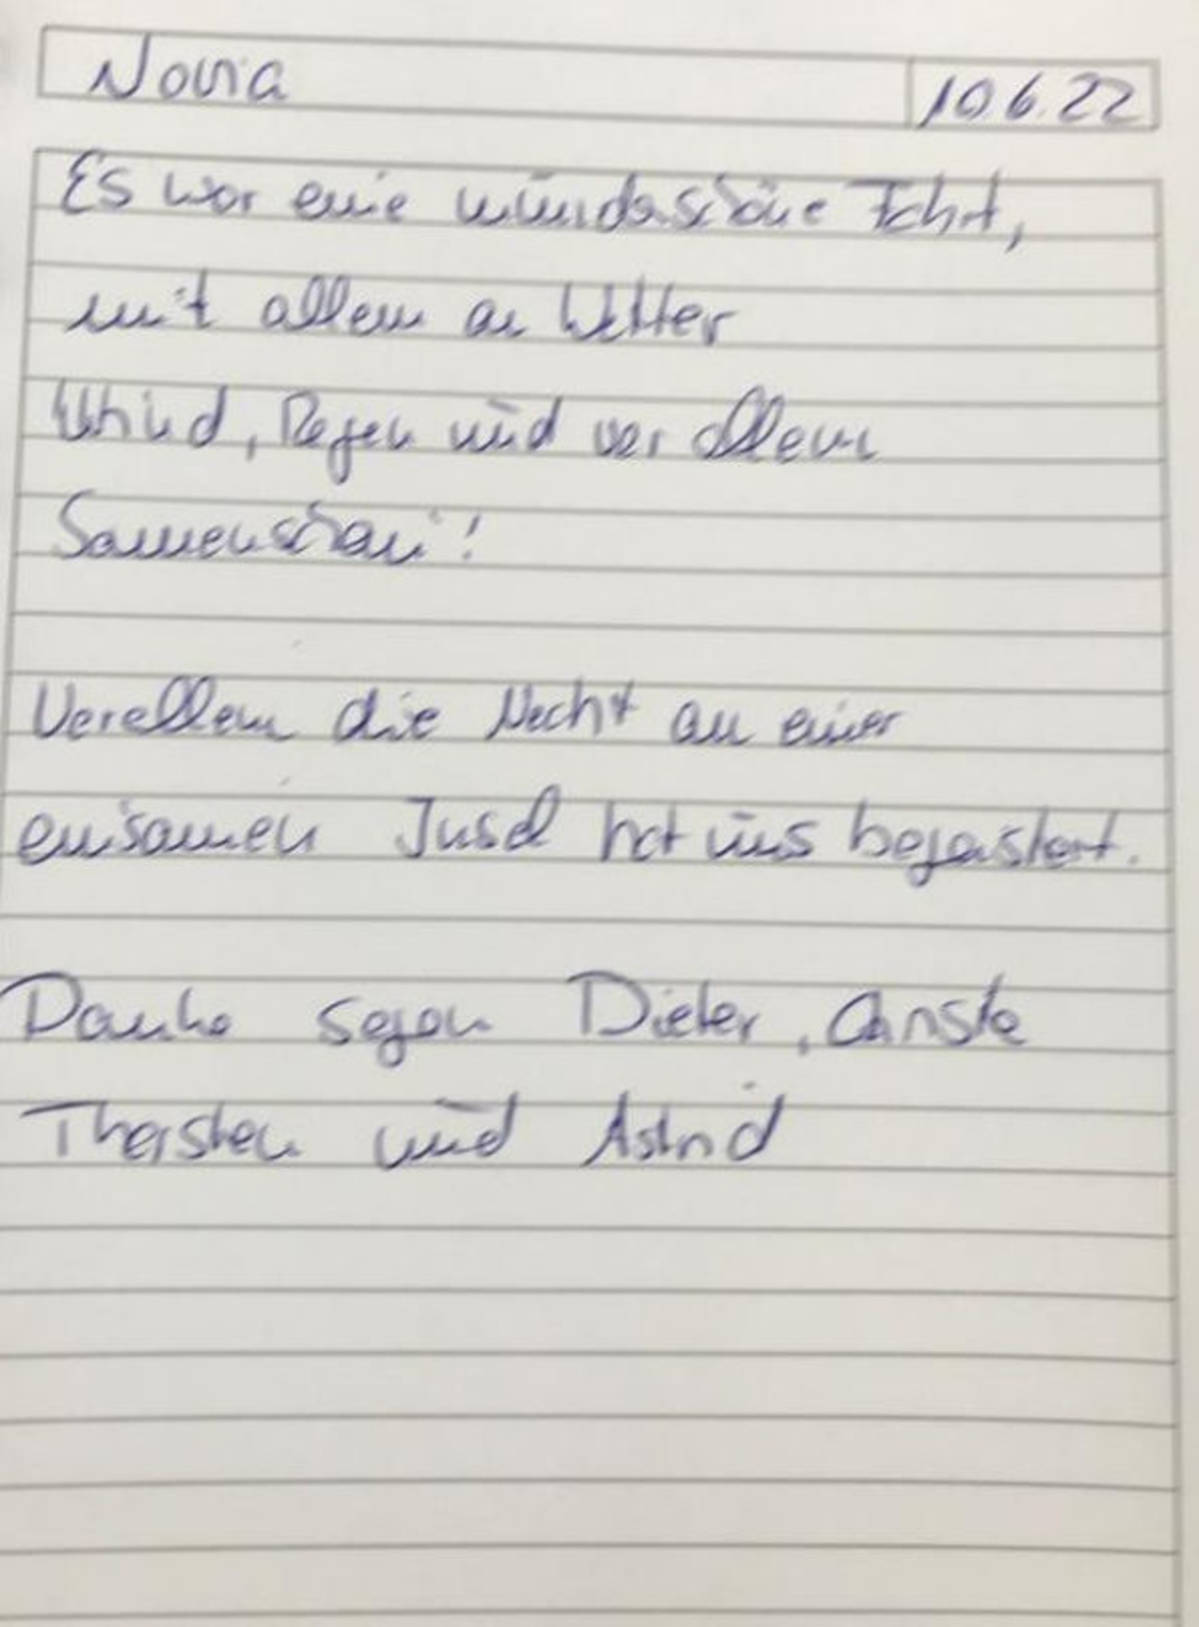 Novia 10.6.22
Es war eine wunderschöne Fahrt,
mit allem an Wetter
Wind, Regen und vor allem
Sonnenschein!
Vorallem die Nacht an einer
einsamen Insel hat uns begeistert.
Danke sagen Dieter,
Thorsten und Astrid